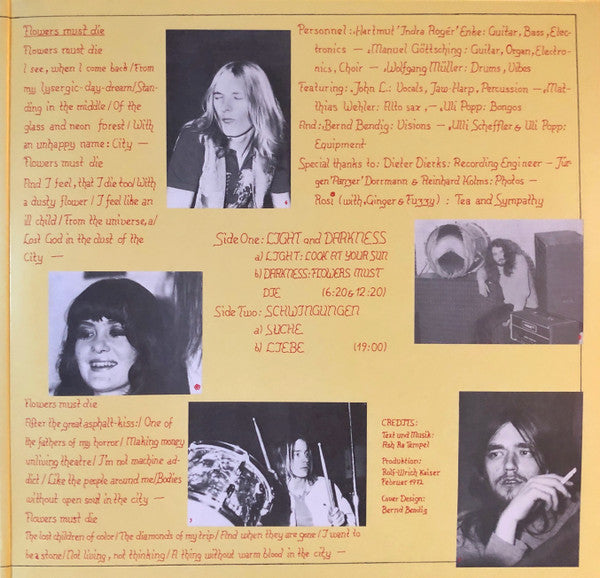 Flowers must die
Flowers must die
I see, when I come back/From
my lysergic-day-dream/Stan-
ding in the middle/Of the
glass and neon forest/With
an unhappy name: City —
Flowers must die
And I feel, that I die too/With
a dusty flower/I feel like an
ill child/From the universe, a/
Lost God in the dust of the
City —
Personnel: Hartmut 'Indra Roger' Enke: Guitar, Bass, Elec-
tronics — Manuel Göttsching: Guitar, Organ, Electro-
nics, Choir — Wolfgang Müller: Drums, Vibes
Featuring: John L.: Vocals, Jaw-Harp, Percussion — Mat-
thias Wehler: Alto sax, — Uli Popp: Bongos
And: Bernd Bendig: Visions — Ulli Scheffler & Uli Popp:
Equipment
Special thanks to: Dieter Dierks: Recording Engineer — Jür-
gen 'Panzer' Dorrmann & Reinhard Kolms: Photos —
Rosi (with Ginger & Fuzzy) : Tea and Sympathy
Side One: LIGHT and DARKNESS
a) LIGHT: LOOK AT YOUR SUN
b) DARKNESS: FLOWERS MUST
DIE (6:20 & 12:20)
Side Two: SCHWINGUNGEN
a) SUCHE
b) LIEBE (19:00)
Flowers must die
After the great asphalt-kiss:/ One of
the fathers of my horror/ Making money
unliving theatre/ I'm not machine ad-
dict/ Like the people around me/Bodies
without open soul in the city —
Flowers must die
The lost children of color/ The diamonds of my trip/ And when they are gone/ I want to
be a stone/ Not living, not thinking/ A thing without warm blood in the city —
CREDITS:
Text und Musik:
Ash Ra Tempel
Produktion:
Rolf-Ulrich Kaiser
Februar 1972
Cover Design:
Bernd Bendig